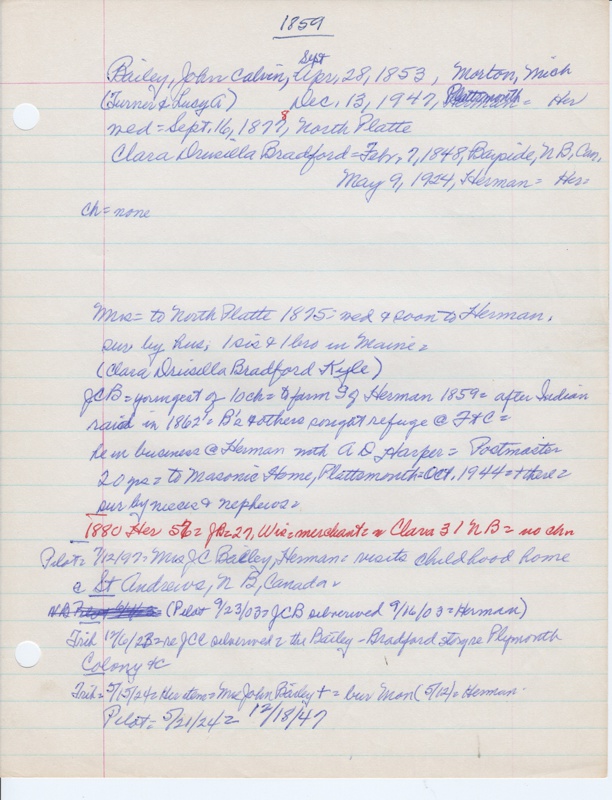 1859
Sept
Bailey, John Calvin, Apr, 28, 1853, Morton, Mich
(Turner & Lucy A) Dec, 13, 1947, Plattsmouth = Her
wed = Sept. 16, 1877 8, North Platte
Clara Druscilla Bradford = Febr, 7, 1848, Bayside, N B, Can,
May 9, 1924, Herman = Her =
ch = none
Mrs = to North Platte 1875 = wed & soon to Herman,
sur by hus, 1 sis & 1 bro in Maine =
(Clara Driscilla Bradford Kyle)
JCB = youngest of 10 ch = to farm S of Herman 1859 = after Indian
raid in 1862 = B's & others sought refuge @ Ft C =
he in business @ Herman with A D Harper = Postmaster
20 yrs = to Masonic Home, Plattsmouth = Oct, 1944 = + there =
sur by nieces & nephews =
1880 Her 56 = JB = 27, Wis = merchant = w Clara 31 N B = no chn
Pilot = 7/12/97 = Mrs J C Bailey, Herman = visits childhood home
@ St Andrews, N B, Canada =
(Pilot 9/23/03 = JCB silverwed 9/16/03 = Herman)
Trib 12/6/28 = re JCC silverwed = the Bailey - Bradford story re Plymouth
Colony &c
Trib = 5/15/24 = Her item = Mrs John Bailey + = bur Mon (5/12) = Herman -
Pilot = 5/21/24 = 12/18/47